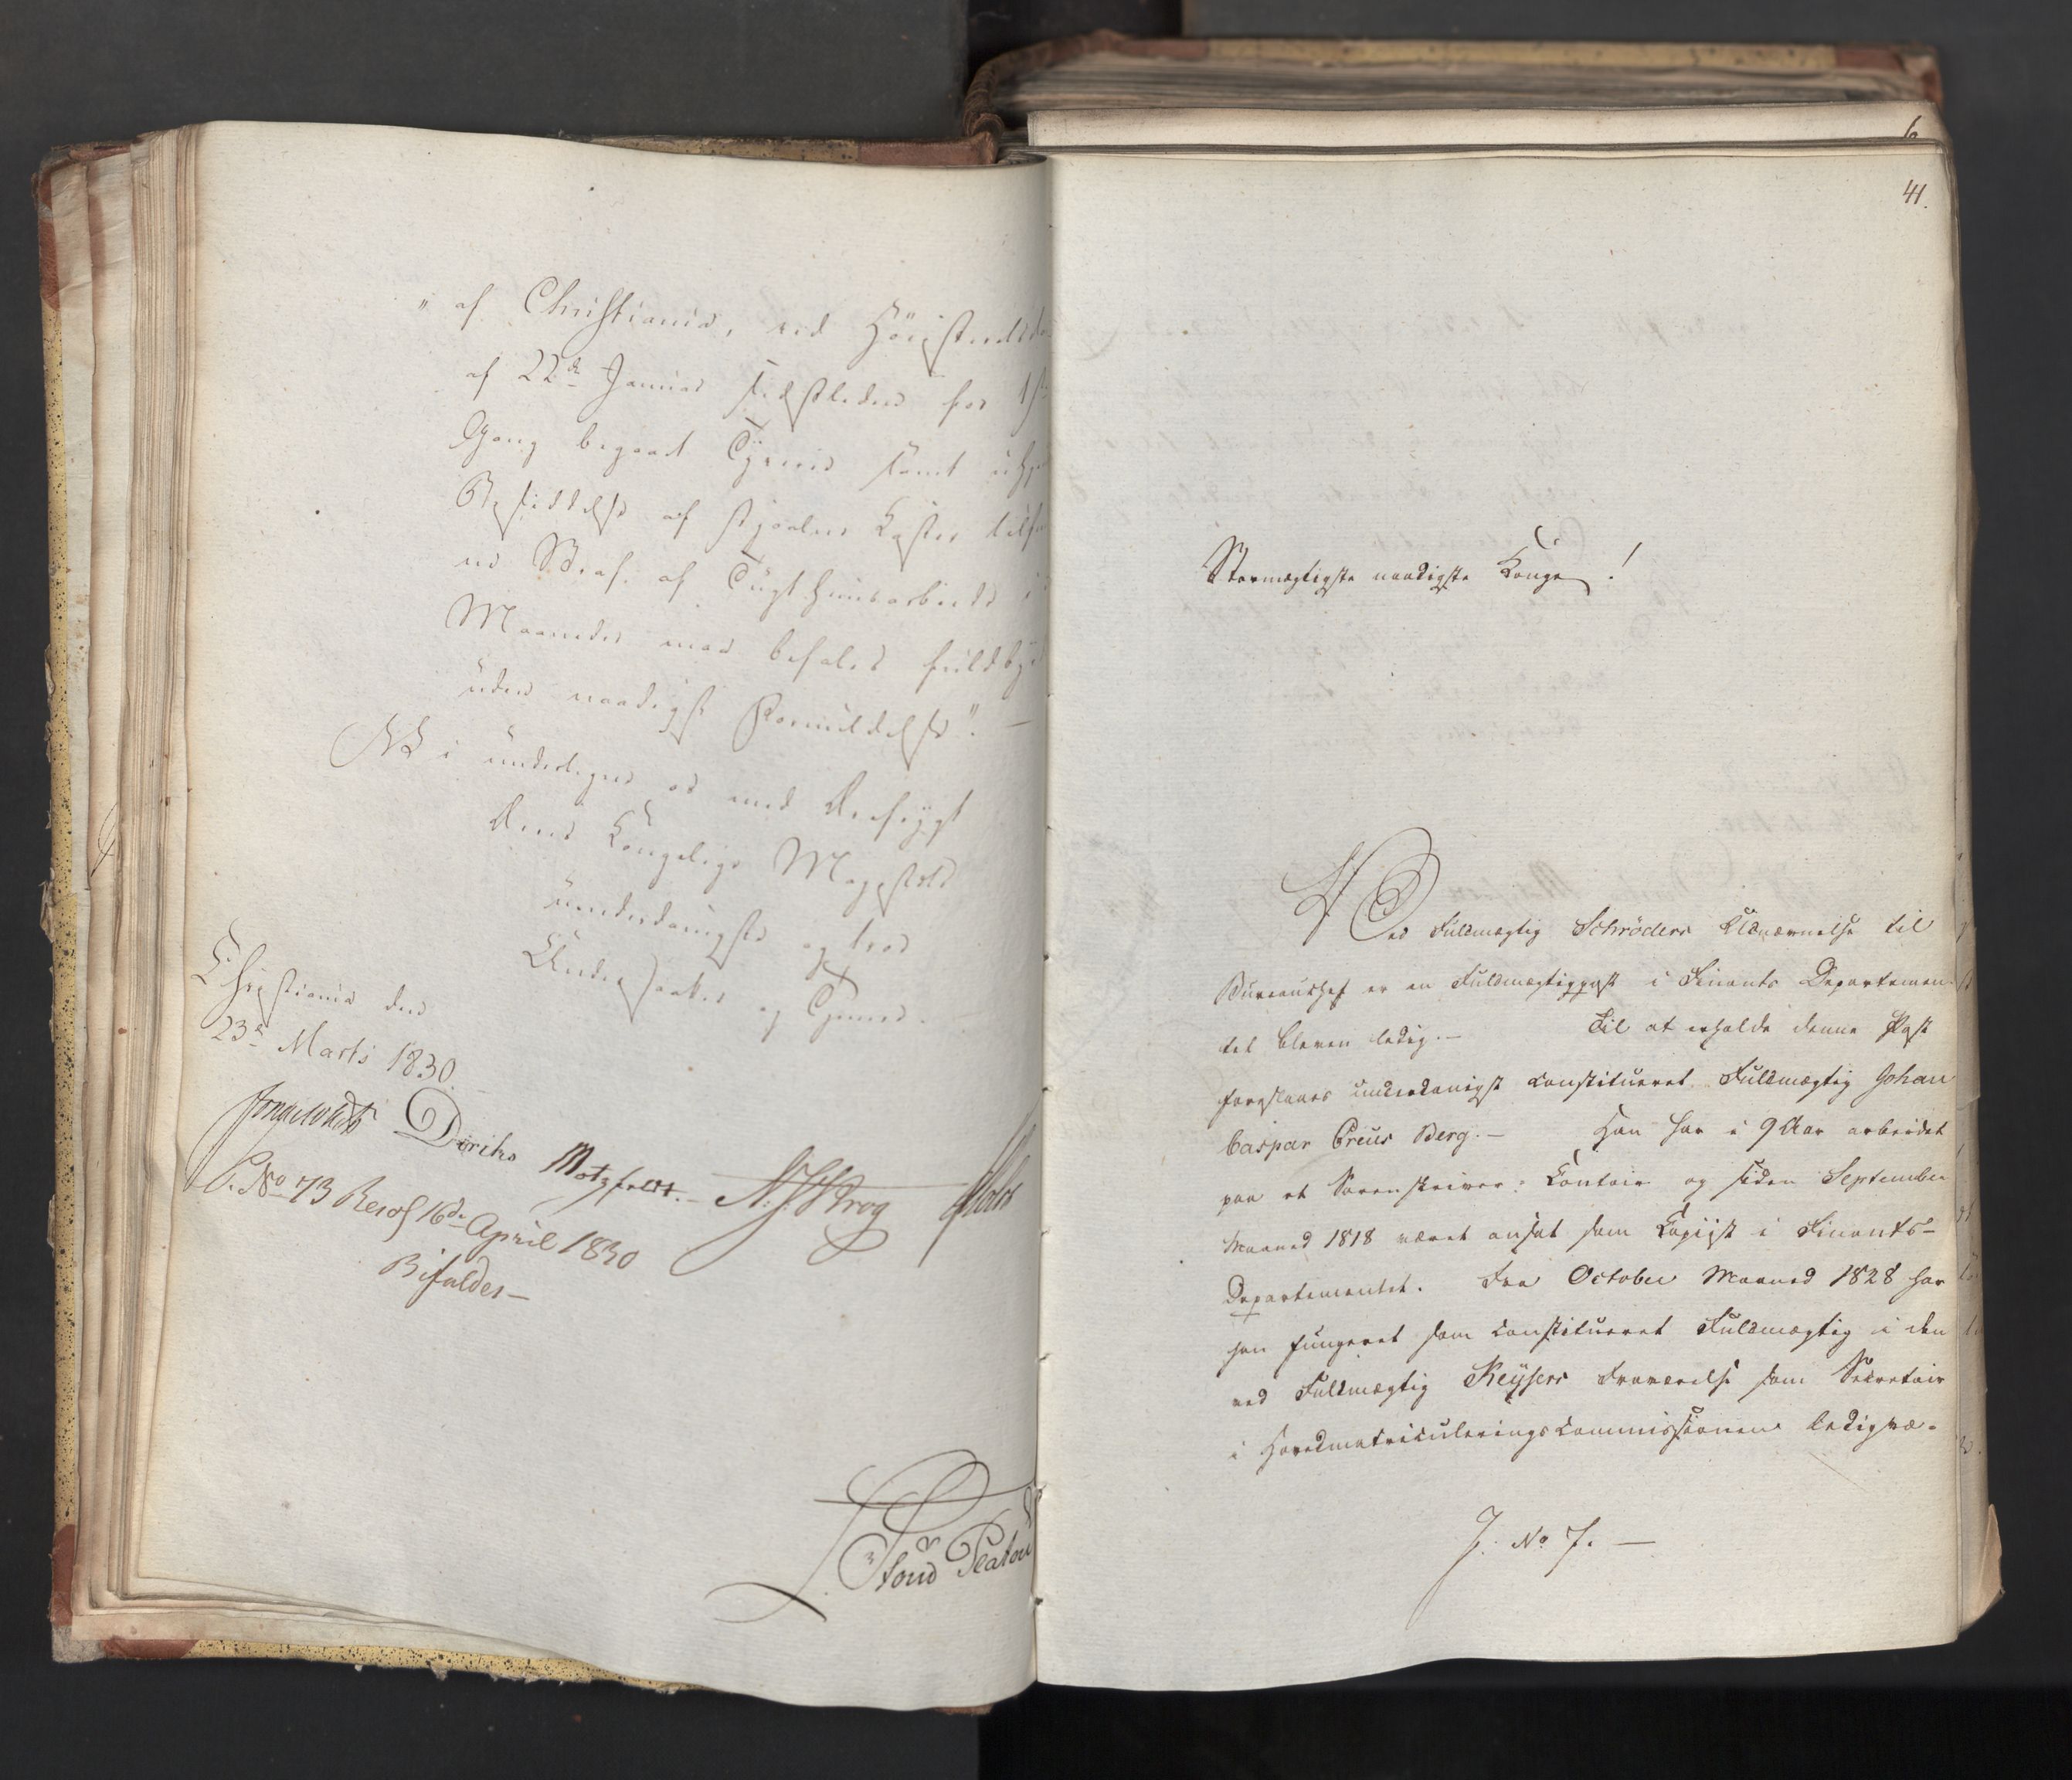 " af Christiania, ved Høiesteretsdom
af 22de Januar sidstleden for 1ste
Gang begaaet Tyverie samt
Besiddelse af stjaalne Koster
en Straf af Tugthuusarbeide i
Maaneder maa befales
uden naadigst Formildelse". —
Vi undertegne os med Ærefrygt
Deres Kongelige Majestæts
underdanigste og troe
Undersaatter og Tjenere.
Christiania den
23de Marts 1830.
Diriks Motzfeldt. — N: J: Krog Holst
P. No 73 Resol 16de April 1830
Bifaldes —
6
41.
Stormægtigste naadigste Konge!
Ved Fuldmægtig Schröders Udnævnelse til
Bureauchef er en Fuldmægtigpost i Finants Departemen-
tet bleven ledig. — Til at erholde denne Post
foreslaaes underdanigst constitueret Fuldmægtig Johan
Caspar Preus Berg. — Han har i 9 Aar arbeidet
paa et Sorenskriver-Contoir og siden September
Maaned 1818 været ansat som Copiist i Finants-
Departementet. Fra October Maaned 1828 har
han fungeret som constitueret Fuldmægtig i den
ved Fuldmægtig Keysers Fraværelse som Secretair
i Hovedmatriculeringscommissionen ledigvæ-
J. No 7. —